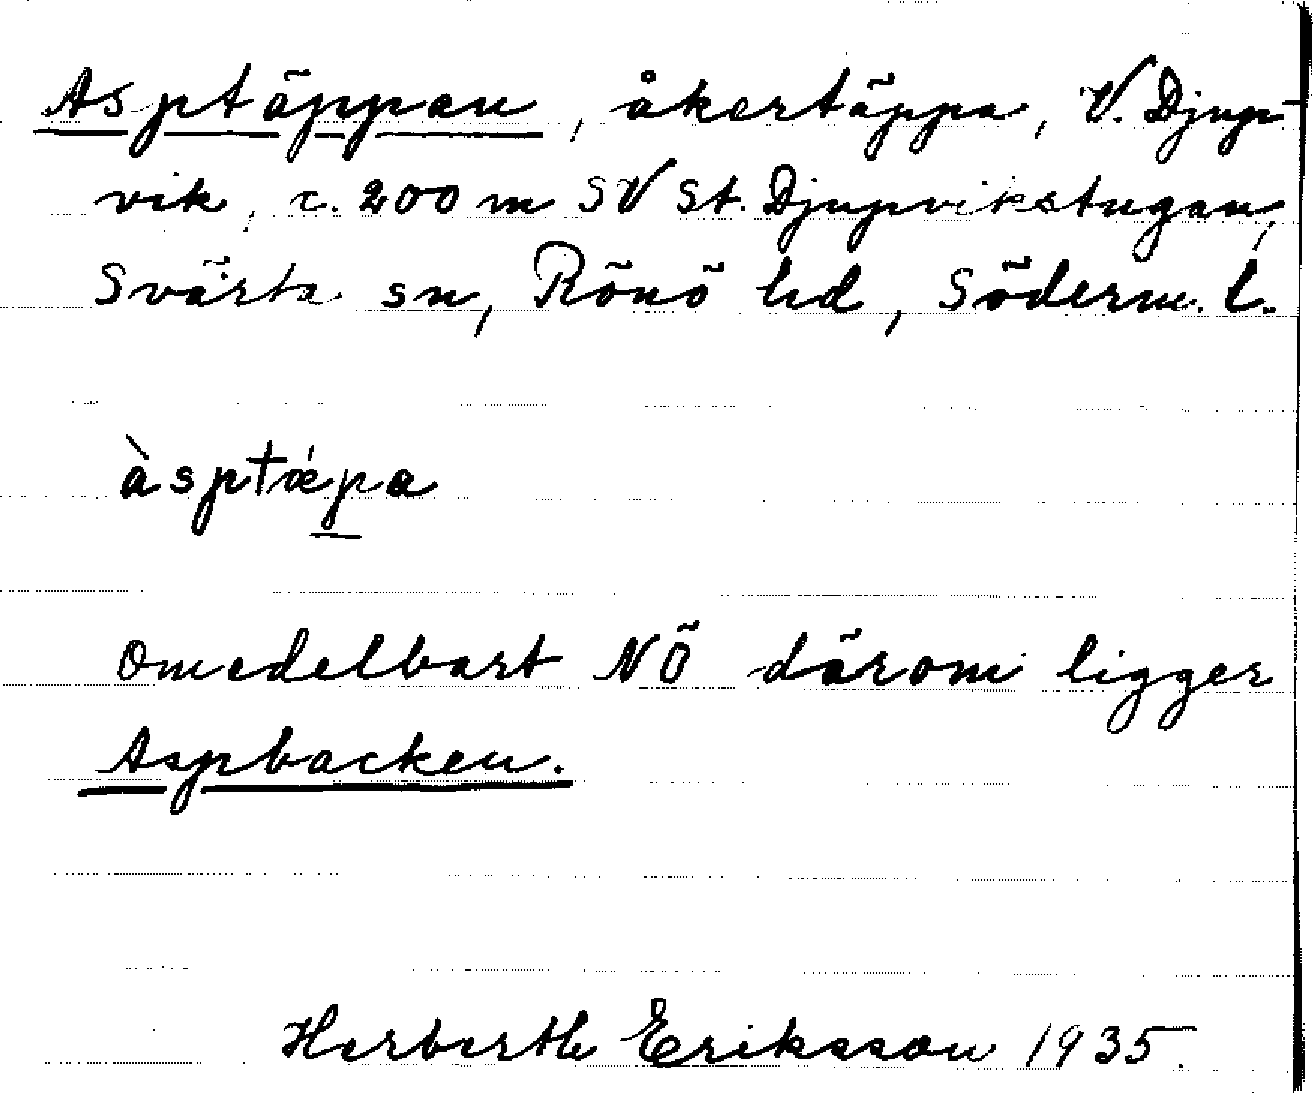 Asptäppan, åkertäppa, V. Djup-
vik, c. 200 m SV St. Djupvikstugan,
Svärta sn, Rönö hd, Söderm. l.
àsptǽpa
Omedelbart NÖ därom ligger
Aspbacken.
Herberth Eriksson 1935.